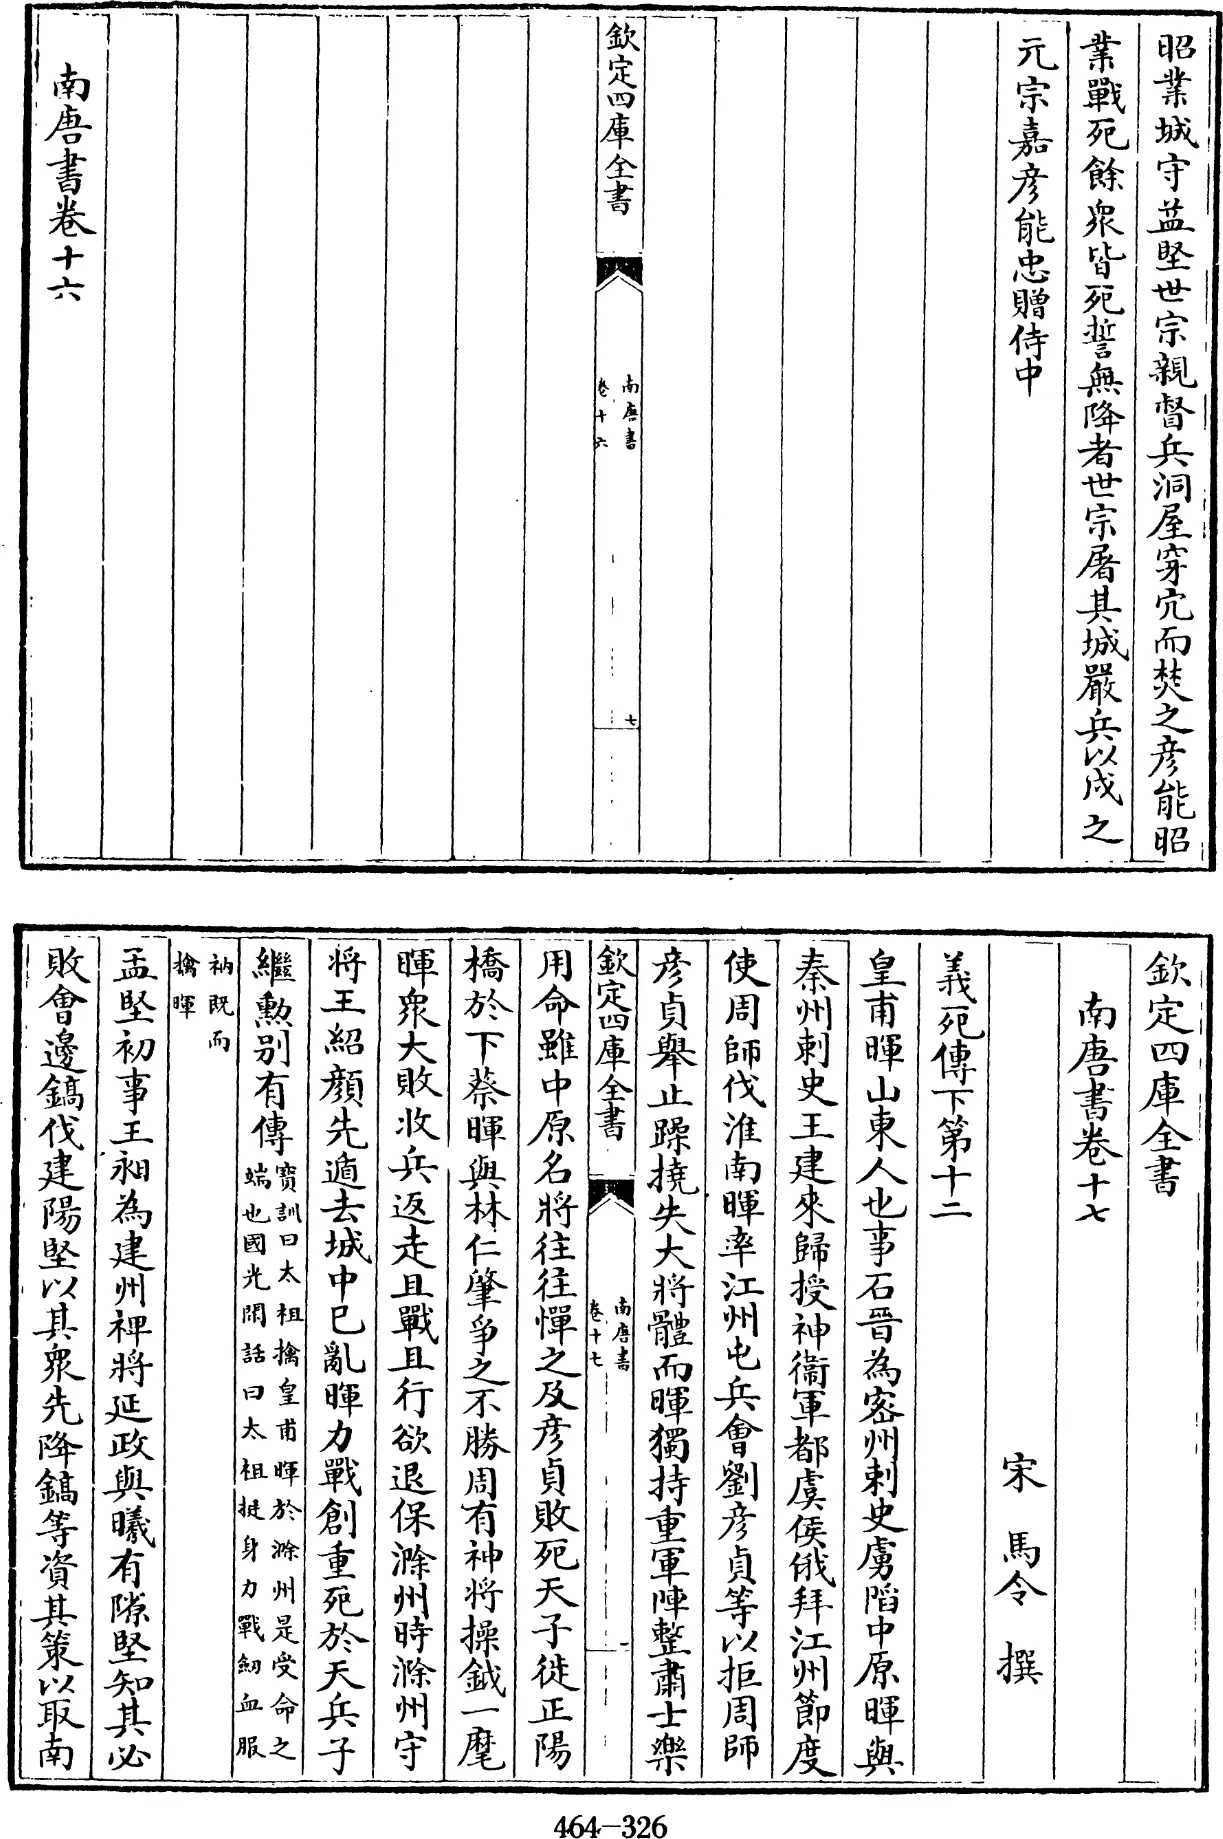 昭業城守益堅世宗親督兵洞屋穿穴而焚之彦能昭
業戰死餘衆皆死誓無降者世宗屠其城嚴兵以戍之
元宗嘉彦能忠贈侍中
欽定四庫全書
南唐書
卷十六
七
南唐書卷十六
欽定四庫全書
南唐書卷十七
宋 馬令 撰
義死傳下第十二
皇甫暉山東人也事石晉為密州刺史虜陷中原暉與
秦州刺史王建來歸授神衛軍都虞侯俄拜江州節度
使周師伐淮南暉率江州屯兵會劉彦貞等以拒周師
彦貞舉止躁撓失大將體而暉獨持重軍陣整肅士樂
欽定四庫全書
南唐書
卷十七
一
用命雖中原名將往往憚之及彦貞敗死天子徙正陽
橋於下蔡暉與林仁肇爭之不勝周有神將操鉞一麾
暉衆大敗收兵返走且戰且行欲退保滁州時滁州守
將王紹顏先遁去城中已亂暉力戰創重死於天兵子
繼勲別有傳
寶訓曰太祖擒皇甫暉於滁州是受命之
端也國光閒話曰太祖挺身力戰刱血服
衲既而
擒暉
孟堅初事王昶為建州裨將延政與曦有隙堅知其必
敗會邊鎬伐建陽堅以其衆先降鎬等資其策以取南
464-326